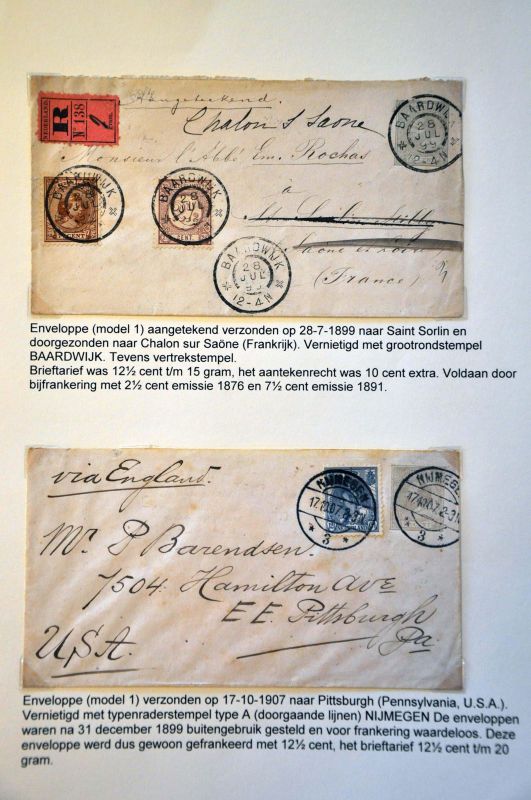 NEDERLAND.
R
No 138
Aangeteekend.
Chalon s/ Saône
Monsieur l'Abbé Em. Rochas
à
(France)
BAARDWIJK
28
JUL
99
12-4N
BAARDWIJK
28
JUL
99
CENT
BAARDWIJK
28
JUL
99
CENT
BAARDWIJK
28
JUL
99
12-4N
Enveloppe (model 1) aangetekend verzonden op 28-7-1899 naar Saint Sorlin en
doorgezonden naar Chalon sur Saöne (Frankrijk). Vernietigd met grootrondstempel
BAARDWIJK. Tevens vertrekstempel.
Brieftarief was 12½ cent t/m 15 gram, het aantekenrecht was 10 cent extra. Voldaan door
bijfrankering met 2½ cent emissie 1876 en 7½ cent emissie 1891.
via England.
NIJMEGEN
17.10.07.2-3N
3
NIJMEGEN
17.10.07.2-3N
3
Mr P Barendsen.
7504 Hamilton Ave
E E. Pittsburgh
Pa
U.S.A.
Enveloppe (model 1) verzonden op 17-10-1907 naar Pittsburgh (Pennsylvania, U.S.A.).
Vernietigd met typenraderstempel type A (doorgaande lijnen) NIJMEGEN De enveloppen
waren na 31 december 1899 buitengebruik gesteld en voor frankering waardeloos. Deze
enveloppe werd dus gewoon gefrankeerd met 12½ cent, het brieftarief 12½ cent t/m 20
gram.